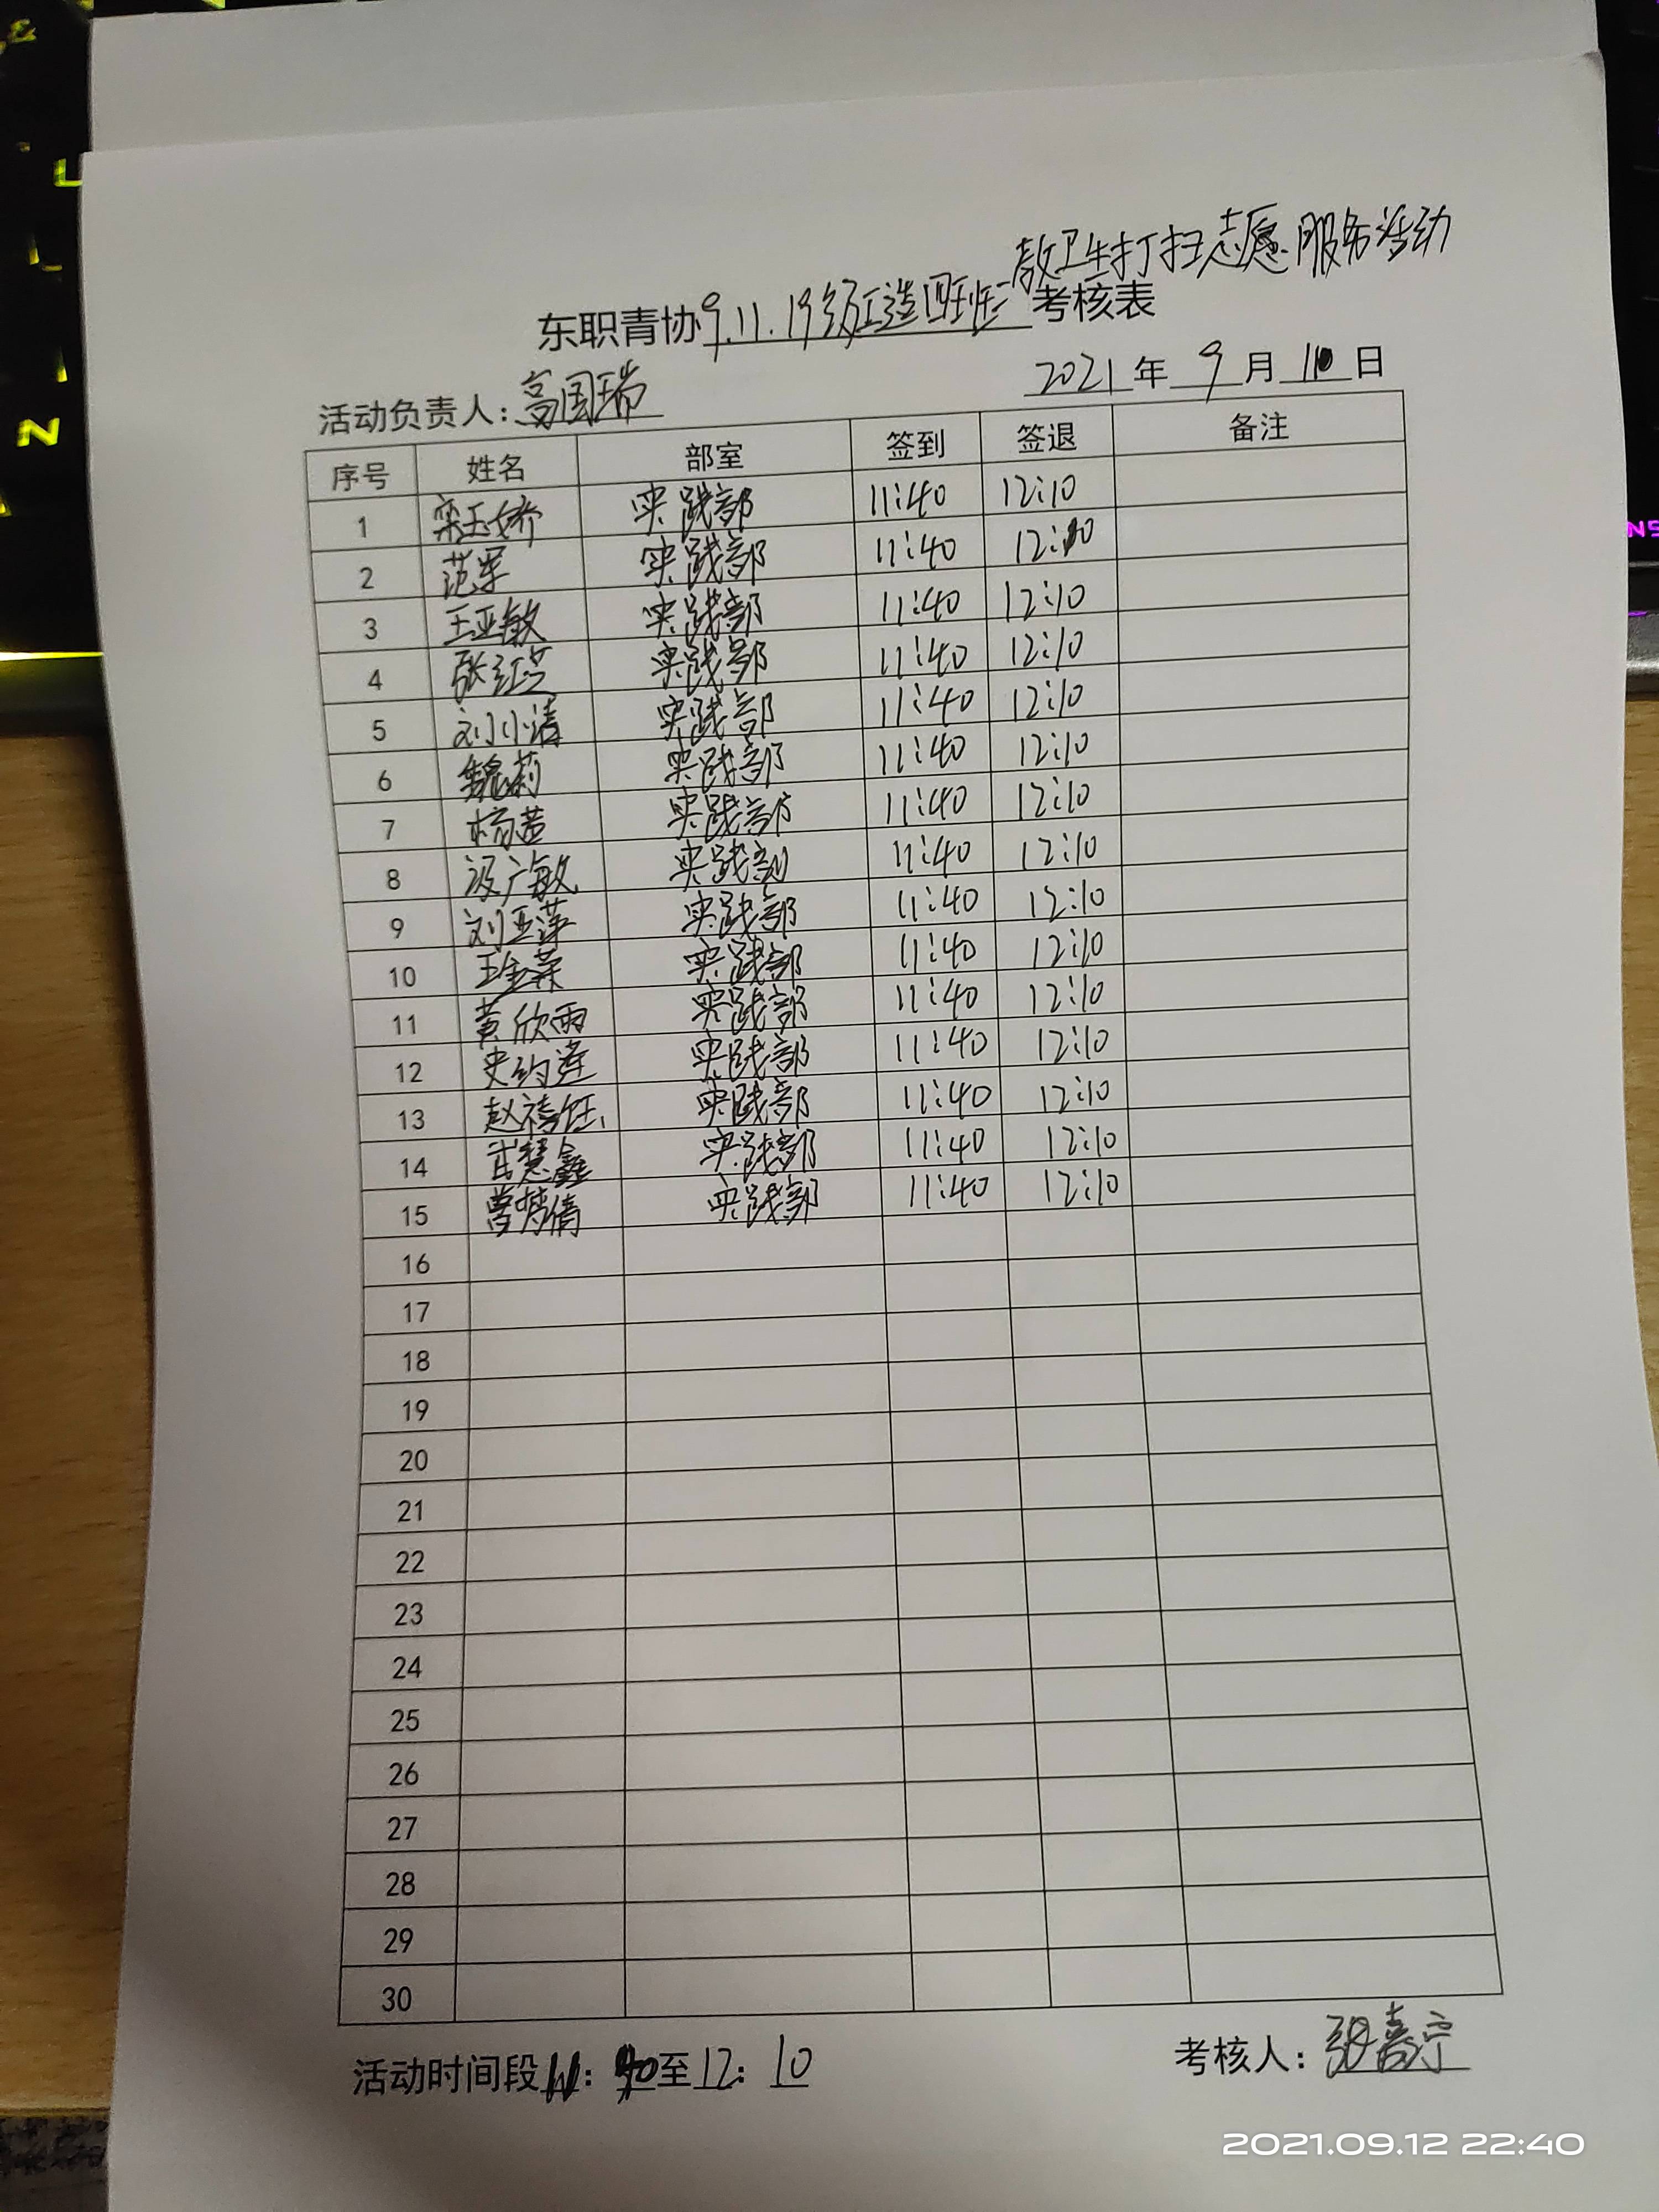 教卫生打扫志愿服务活动
东职青协9.11.19级工造四班二考核表
活动负责人:高国瑞 2021年9月10日
序号 姓名 部室 签到 签退 备注
1 栾玉娇 实践部 11:40 12:10
2 范军 实践部 11:40 12:10
3 王亚敏 实践部 11:40 12:10
4 张红芝 实践部 11:40 12:10
5 刘小清 实践部 11:40 12:10
6 魏莉 实践部 11:40 12:10
7 杨茜 实践部 11:40 12:10
8 广敏 实践部 11:40 12:10
9 刘亚萍 实践部 11:40 12:10
10 王金荣 实践部 11:40 12:10
11 黄欣雨 实践部 11:40 12:10
12 史约莲 实践部 11:40 12:10
13 赵禧钰 实践部 11:40 12:10
14 武慧鑫 实践部 11:40 12:10
15 曹梦倩 实践部 11:40 12:10
16
17
18
19
20
21
22
23
24
25
26
27
28
29
30
活动时间段11:40至12:10 考核人:张喜宁
2021.09.12 22:40
N